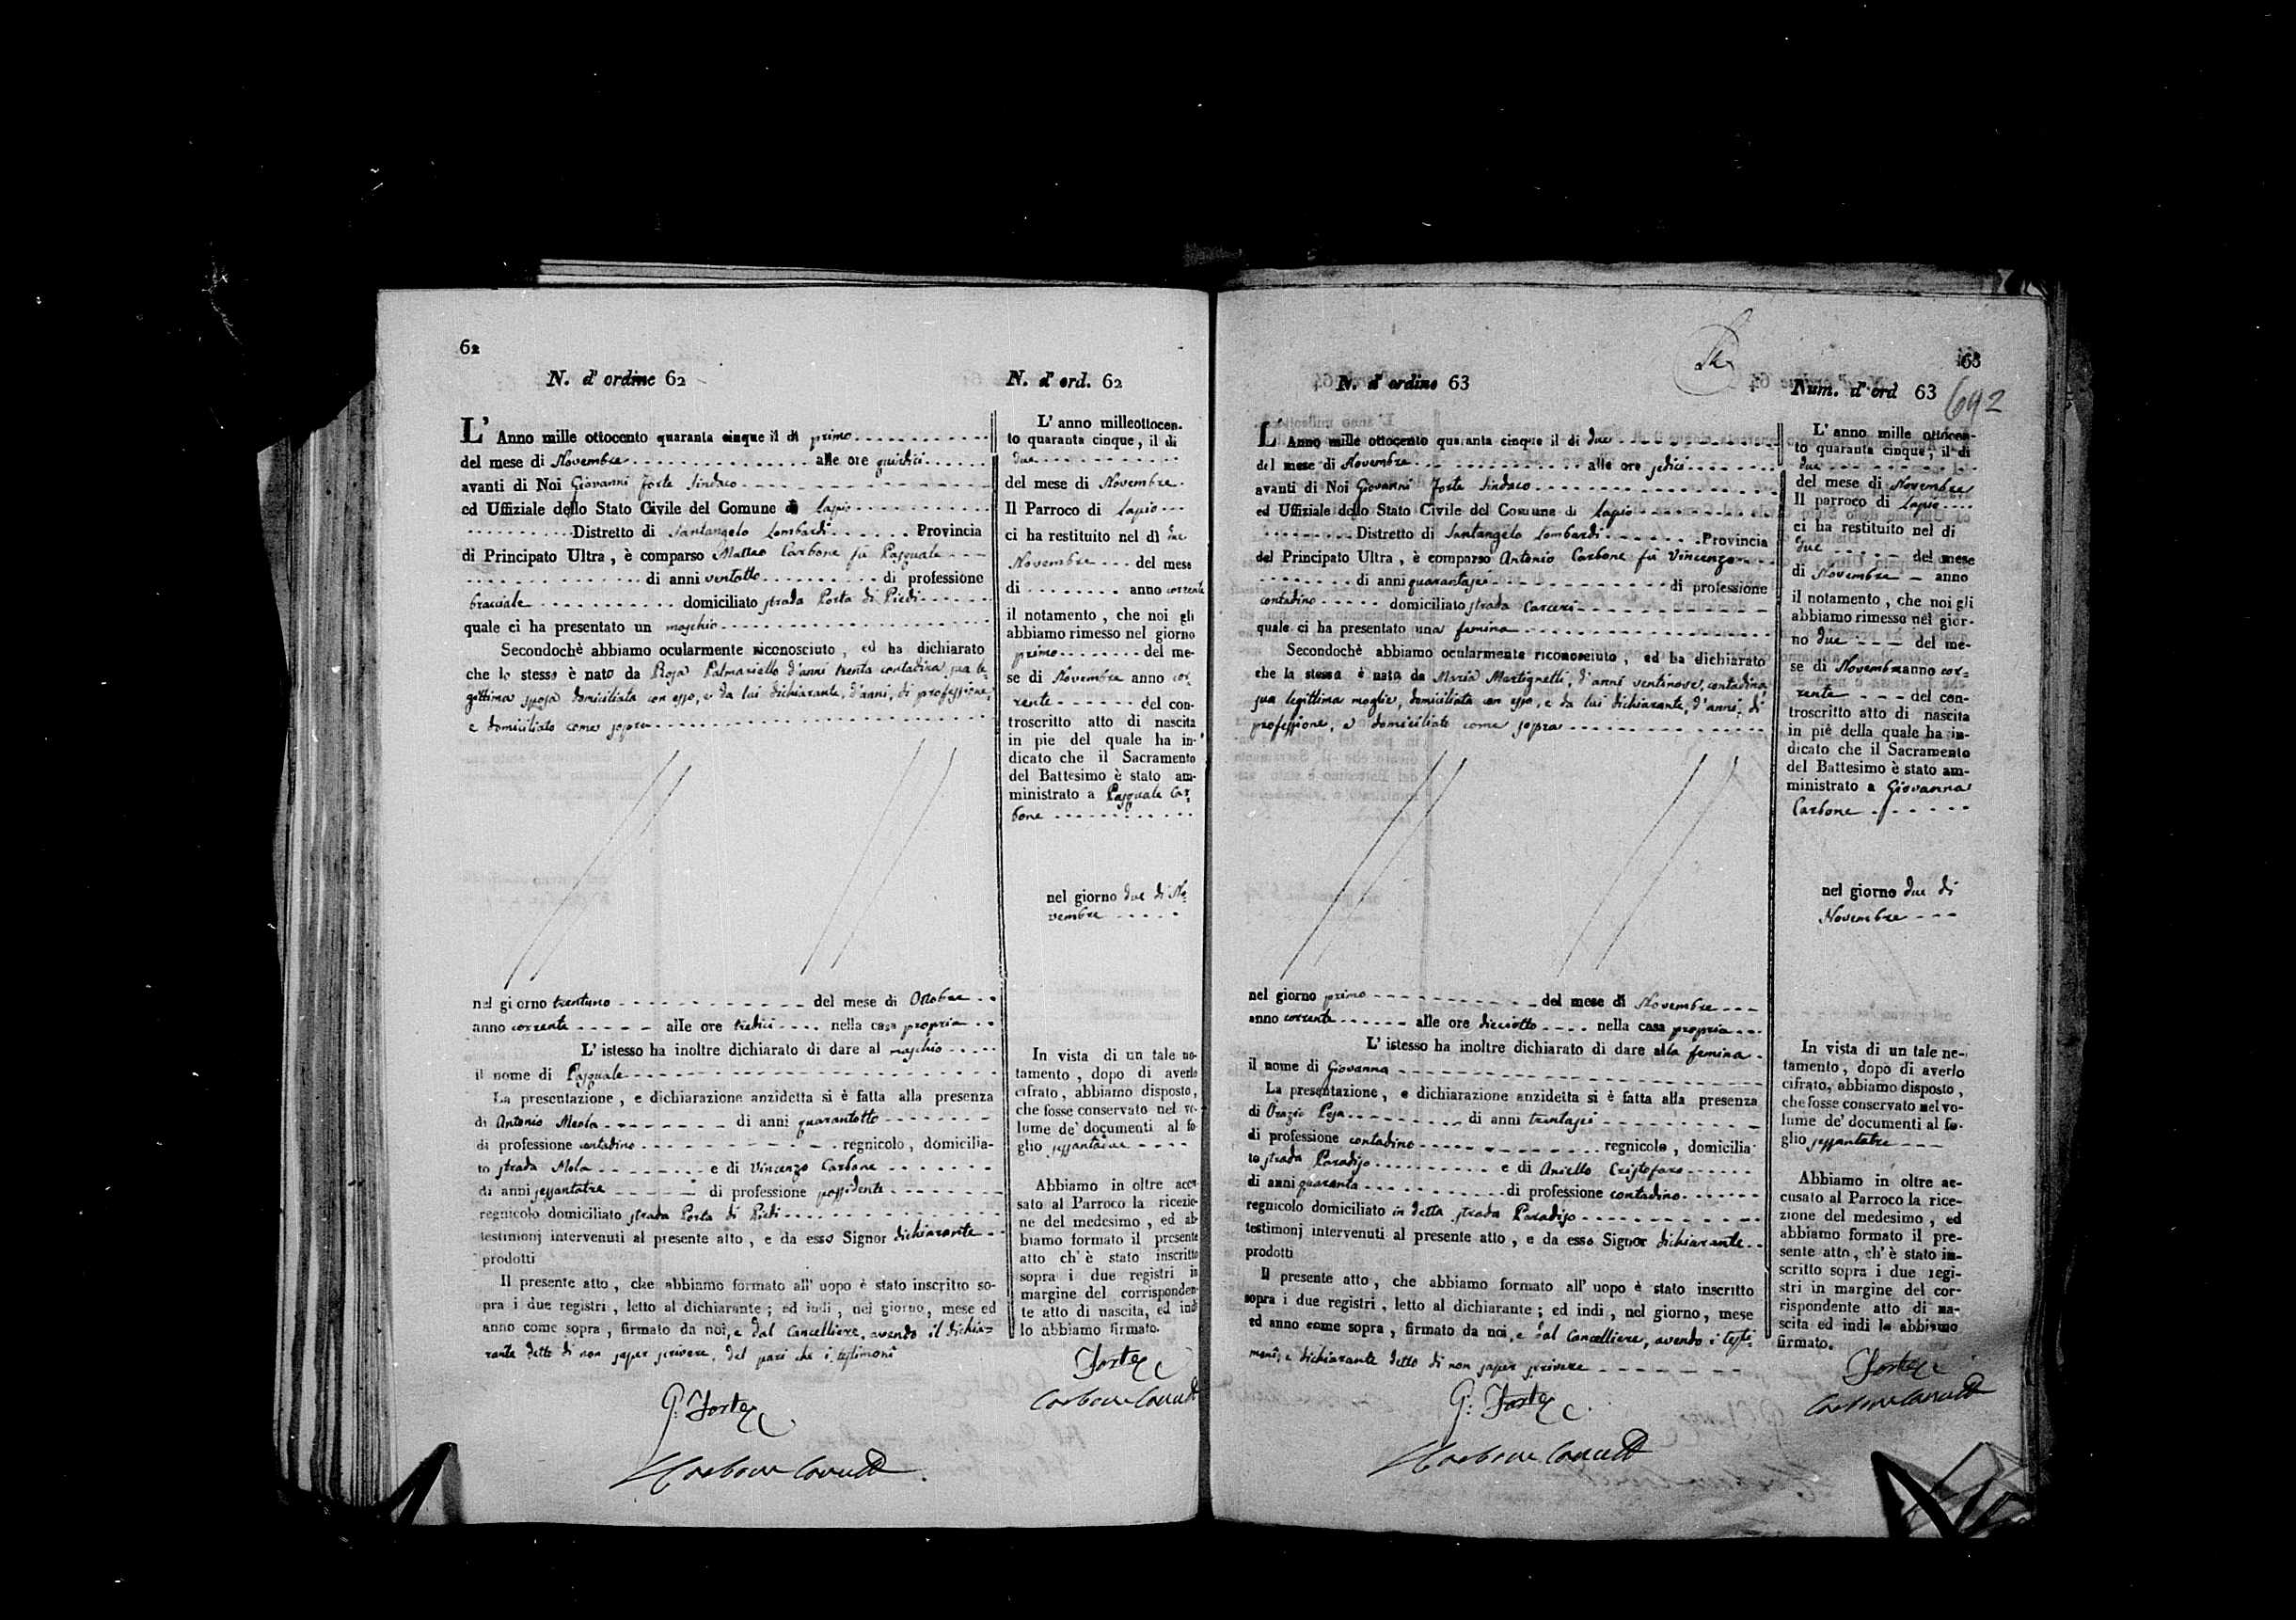 62
N. d' ordine 62
L' Anno mille ottocento quaranta cinque il di primo
del mese di Novembre alle ore quindici
avanti di Noi Giovanni Forte Sindaco
ed Uffiziale dello Stato Civile del Comune di Lapio
Distretto di Santangelo Lombardi Provincia
di Principato Ultra, è comparso Matteo Carbone fù Pasquale
di anni ventotto di professione
bracciale domiciliato strada Porta di Piedi
quale ci ha presentato un maschio
Secondochè abbiamo ocularmente riconosciuto, ed ha dichiarato
che lo stesso è nato da Rosa Palmariello d'anni trenta contadina sua le=
gittima sposa domiciliata con esso, e da lui dichiarante, d'anni, di professione,
e domiciliato come sopra
nel giorno trentuno del mese di Ottobre
anno corrente alle ore tredici nella casa propria
L' istesso ha inoltre dichiarato di dare al maschio
il nome di Pasquale
La presentazione, e dichiarazione anzidetta si è fatta alla presenza
di Antonio Meola di anni quarantotto
di professione contadino regnicolo, domicilia-
to strada Mola e di Vincenzo Carbone
di anni sessantatre di professione possidente
regnicolo domiciliato strada Porta di Piedi
testimonj intervenuti al presente atto, e da esso Signor dichiarante
prodotti
Il presente atto, che abbiamo formato all' uopo è stato inscritto so-
pra i due registri, letto al dichiarante; ed indi, nel giorno, mese ed
anno come sopra, firmato da noi, e dal Cancelliere, avendo il dichia=
rante detto di non saper scrivere, del pari che i testimoni
G. Forte
N. d' ord. 62
L' anno milleottocen-
to quaranta cinque, il di
due
del mese di Novembre
Il Parroco di Lapio
ci ha restituito nel dì due
Novembre del mese
di anno corrente
il notamento, che noi gli
abbiamo rimesso nel giorno
primo del me-
se di Novembre anno cor
rente del con-
troscritto atto di nascita
in pie del quale ha in-
dicato che il Sacramento
del Battesimo è stato am-
ministrato a Pasquale Car
bone
nel giorno due di No
vembre
In vista di un tale no-
tamento, dopo di averlo
cifrato, abbiamo disposto,
che fosse conservato nel vo-
lume de' documenti al fo-
glio
Abbiamo in oltre accu-
sato al Parroco la ricezio-
ne del medesimo, ed ab-
biamo formato il presente
atto ch' è stato inscritto
sopra i due registri in
margine del corrisponden-
te atto di nascita, ed indi
lo abbiamo firmato.
Forte
63
692
N. d' ordine 63
L' Anno mille ottocento quaranta cinque il di due
del mese di Novembre alle ore sedici
avanti di Noi Giovanni Forte Sindaco
ed Uffiziale dello Stato Civile del Comune di Lapio
Distretto di Santangelo Lombardi Provincia
del Principato Ultra, è comparso Antonio Carbone fù Vincenzo
di anni quarantasei di professione
contadino domiciliato strada Carceri
quale ci ha presentato una femina
Secondochè abbiamo ocularmente riconosciuto, ed ha dichiarato
che la stessa è nata da Maria Martignetti, d'anni ventinove, contadina,
sua legittima moglie, domiciliata con esso, e da lui dichiarante, d'anni, di
professione, e domiciliato come sopra
nel giorno primo del mese di Novembre
anno corrente alle ore dieciotto nella casa propria
L' istesso ha inoltre dichiarato di dare alla femina
il nome di Giovanna
La presentazione, e dichiarazione anzidetta si è fatta alla presenza
di Orazio Pesa di anni trentasei
di professione contadino regnicolo, domicilia-
to strada Paradiso e di Aniello Cristofaro
di anni quaranta di professione contadino
regnicolo domiciliato in detta strada Paradiso
testimonj intervenuti al presente atto, e da esso Signor dichiarante
prodotti
Il presente atto, che abbiamo formato all' uopo è stato inscritto
sopra i due registri, letto al dichiarante; ed indi, nel giorno, mese
ed anno come sopra, firmato da noi, e dal Cancelliere, avendo i testi-
moni, e dichiarante detto di non saper scrivere
G. Forte
Num. d' ord 63
L' anno mille ottocen-
to quaranta cinque, il di
due
del mese di Novembre
Il parroco di Lapio
ci ha restituito nel di
due del mese
di Novembre anno
il notamento, che noi gli
abbiamo rimesso nel gior-
no due del me-
se di Novembre anno cor=
rente del con-
troscritto atto di nascita
in piè della quale ha in-
dicato che il Sacramento
del Battesimo è stato am-
ministrato a Giovanna
Carbone
nel giorno due di
Novembre
In vista di un tale no-
tamento, dopo di averlo
cifrato, abbiamo disposto,
che fosse conservato nel vo-
lume de' documenti al fo-
glio sessantatre
Abbiamo in oltre ac-
cusato al Parroco la rice-
zione del medesimo, ed
abbiamo formato il pre-
sente atto, ch' è stato in-
scritto sopra i due regi-
stri in margine del cor-
rispondente atto di na-
scita ed indi lo abbiamo
firmato.
Forte